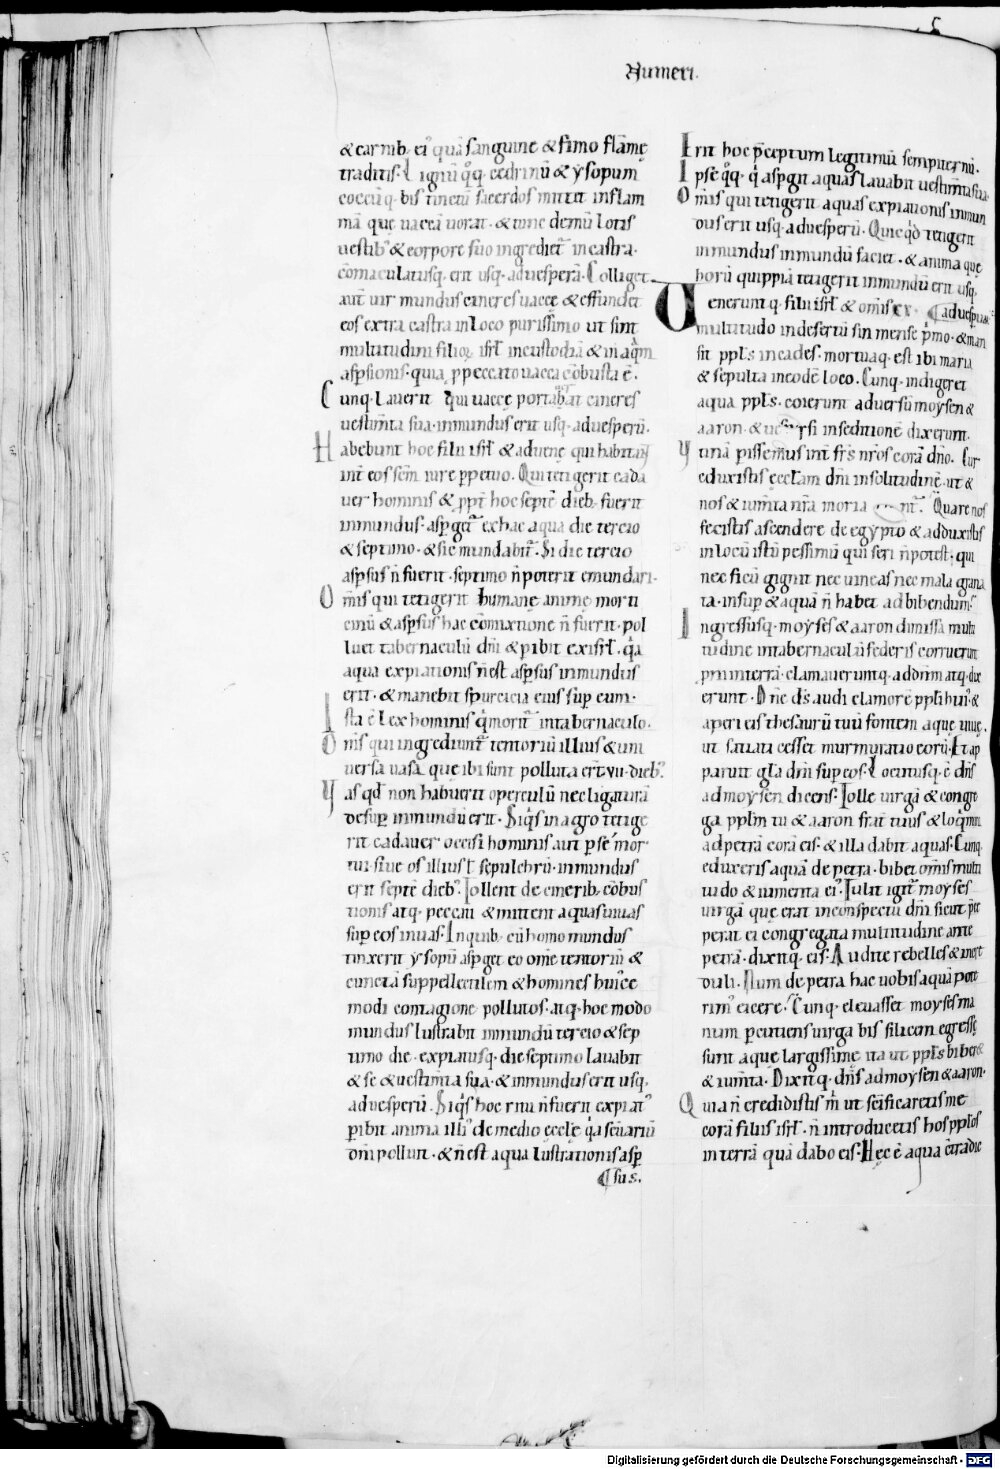 Numeri.
& carnib; ei᾿ quā sanguine & fimo flāmę
traditis. Lignū q̊q; cedrinū & ysopum
coccūq; bis tinctū sacerdos mittit in flam
mā quę uaccā uorat. & tunc demū lotis
uestib᾿ & corpore suo ingrediet᷑ in castra.
cōmaculatusq; erit usq; ad uesperā. Colliget
aut̄ uir mundus cineres uaccę & effundet
eos extra castra in loco purissimo ut sint
multitudini filioꝝ isrl̄ in custodiā & in aq̄m
asp̄sionis. quia p̄ peccato uacca cōbusta ē.
Cunq; lauerit qui uaccę portabat cineres
uestim̄ta sua. inmundus erit usq; ad uesperū.
Habebunt hoc filii isrl̄ & aduenę qui habitant
int̄ eos sc̄m iure ꝑpetuo. Qui tetigerit cada
uer hominis & ꝓpt̄ hoc septē dieb; fuerit
inmundus. asp̄get᷑ ex hac aqua die tercio
& septimo. & sic mundabit᷑. Si die tercio
asp̄sus n̄ fuerit. septimo n̄ poterit emundari.
Om̄is qui tetigerit humanę animę morti
cinū & asp̄sus hac cōmixtione n̄ fuerit. pol
luet tabernaculū dn̄i & ꝑibit ex isrl̄. q̄a
aqua expiationis n̄ est asp̄sus inmundus
erit. & manebit spurcicia eius sup̄ eum.
Ista ē lex hominis q̇ morit᷑ in tabernaculo.
Om̄is qui ingrediunt᷑ tentoriū illius & uni
uersa uasa quę ibi sunt polluta er̄t vii. dieb᾿.
Vas qd̄ non habuerit operculū nec ligaturā
desup̄ inmundū erit. Siq̇s in agro tetige
rit cadauer occisi hominis aut ꝑ se mor
tui. siue os illius ł sepulchrū. inmundus
erit septē dieb᾿. Tollent de cinerib; cōbus
tionis atq; peccati & mittent aquas uiuas
sup̄ eos in uas. In quib; cū homo mundus
tinxerit ysopū asp̄get eo om̄e tentoriū &
cunctā suppellectilem & homines hui᾿ce
modi contagione pollutos. atq; hoc modo
mundus lustrabit inmundū tercio & sep
timo die. expiatusq; die septimo lauabit
& se & uestim̄ta sua. & inmundus erit usq;
ad uesperū. Siq̇s hoc ritu n̄ fuerit expiat᾿
ꝑibit anima illi᾿ de medio eccłę. q̄a sc̄uariū
dn̄i polluit. & n̄ est aqua lustrationis asp̄
sus.
Erit hoc p̄ceptum legitimū sempiternū.
Ipse q̊q; q̇ asp̄git aquas lauabit uestim̄ta sua.
Om̄is qui tetigerit aquas expiationis inmun
dus erit usq; ad uesperū. Quicq̇d tetigerit
inmundus inmundū faciet. & anima quę
horū quippiā tetigerit inmundū erit usq;
ad uesperum.
Venerunt q; filii isrl̄ & om̄is
multitudo in desertū sin mense p̄mo. & man
sit ppl̄s in cades. mortuaq; est ibi maria
& sepulta in eodē loco. Cunq; indigeret
aqua ppl̄s. coierunt aduersū moysen &
aaron. & uersi in seditionē dixerunt.
Vtinā perissemus int̄ fr̄s nr̄os corā dn̄o. Cur
eduxistis eccłam dn̄i in solitudinē. ut &
nos & ium̄ta nr̄a moriant᷑. Quare nos
fecistis ascendere de egypto & adduxistis
in locū istū pessimū qui seri n̄ potest. qui
nec ficū gignit nec uineas nec mala grana
ta. insup̄ & aquā n̄ habet ad bibendum.
Ingressusq; moyses & aaron dimissa multi
tudine in tabernaculū federis corruerunt
proni in terrā. clamaueruntq; ad dn̄m atq; dix
erunt. Dn̄e ds̄ audi clamorē ppl̄i hui᾿ &
aperi eis thesaurū tuū fontem aquę uiuę.
ut satiati cesset murmuratio eorū. Et ap
paruit gl̄a dn̄i sup̄ eos. Locutusq; ē dn̄s
ad moysen dicens. Tolle uirgā & congre
ga ppl̄m tu & aaron frat̄ tuus & loq̇mini
ad petrā corā eis. & illa dabit aquas. Cunq;
eduxeris aquā de petra. bibet om̄is multi
tudo & iumenta ei᾿. Tulit igit᷑ moyses
uirgā quę erat in conspectu dn̄i sicut p̄ce
perat ei congregata multitudine ante
petrā. dixitq; eis. Audite rebelles & incre
duli. Num de petra hac uobis aquā pote
rim᾿ eicere. Cunq; eleuasset moyses ma
num ꝑcutiens uirga bis silicem egressę
sunt aquę largissimę ita ut ppl̄s biberet
& ium̄ta. Dixitq; dn̄s ad moysen & aaron.
Quia n̄ credidistis m̄ ut sc̄ificaretis me
corā filiis isrl̄. n̄ introducetis hos ppl̄os
in terrā quā dabo eis. Hęc ē aqua c̄tradic
Digitalisierung gefördert durch die Deutsche Forschungsgemeinschaft - DFG